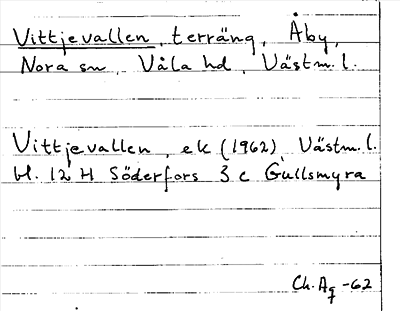 Vittjevallen, terräng, Åby,
Nora sn, Våla hd, Västm. l.
Vittjevallen, ek (1962), Västm. l.
bl. 12 H Söderfors 3 c Gullsmyra
Ch. Ag -62